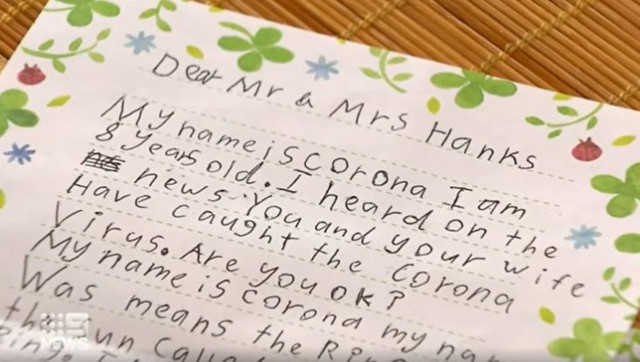 Dear Mr & Mrs Hanks
My name is corona I am
8 years old. I heard on the
news. You and your wife
Have caught the corona
Virus. Are you ok?
My name is corona my nam
Was means the Rin
the un call
9 NEWS